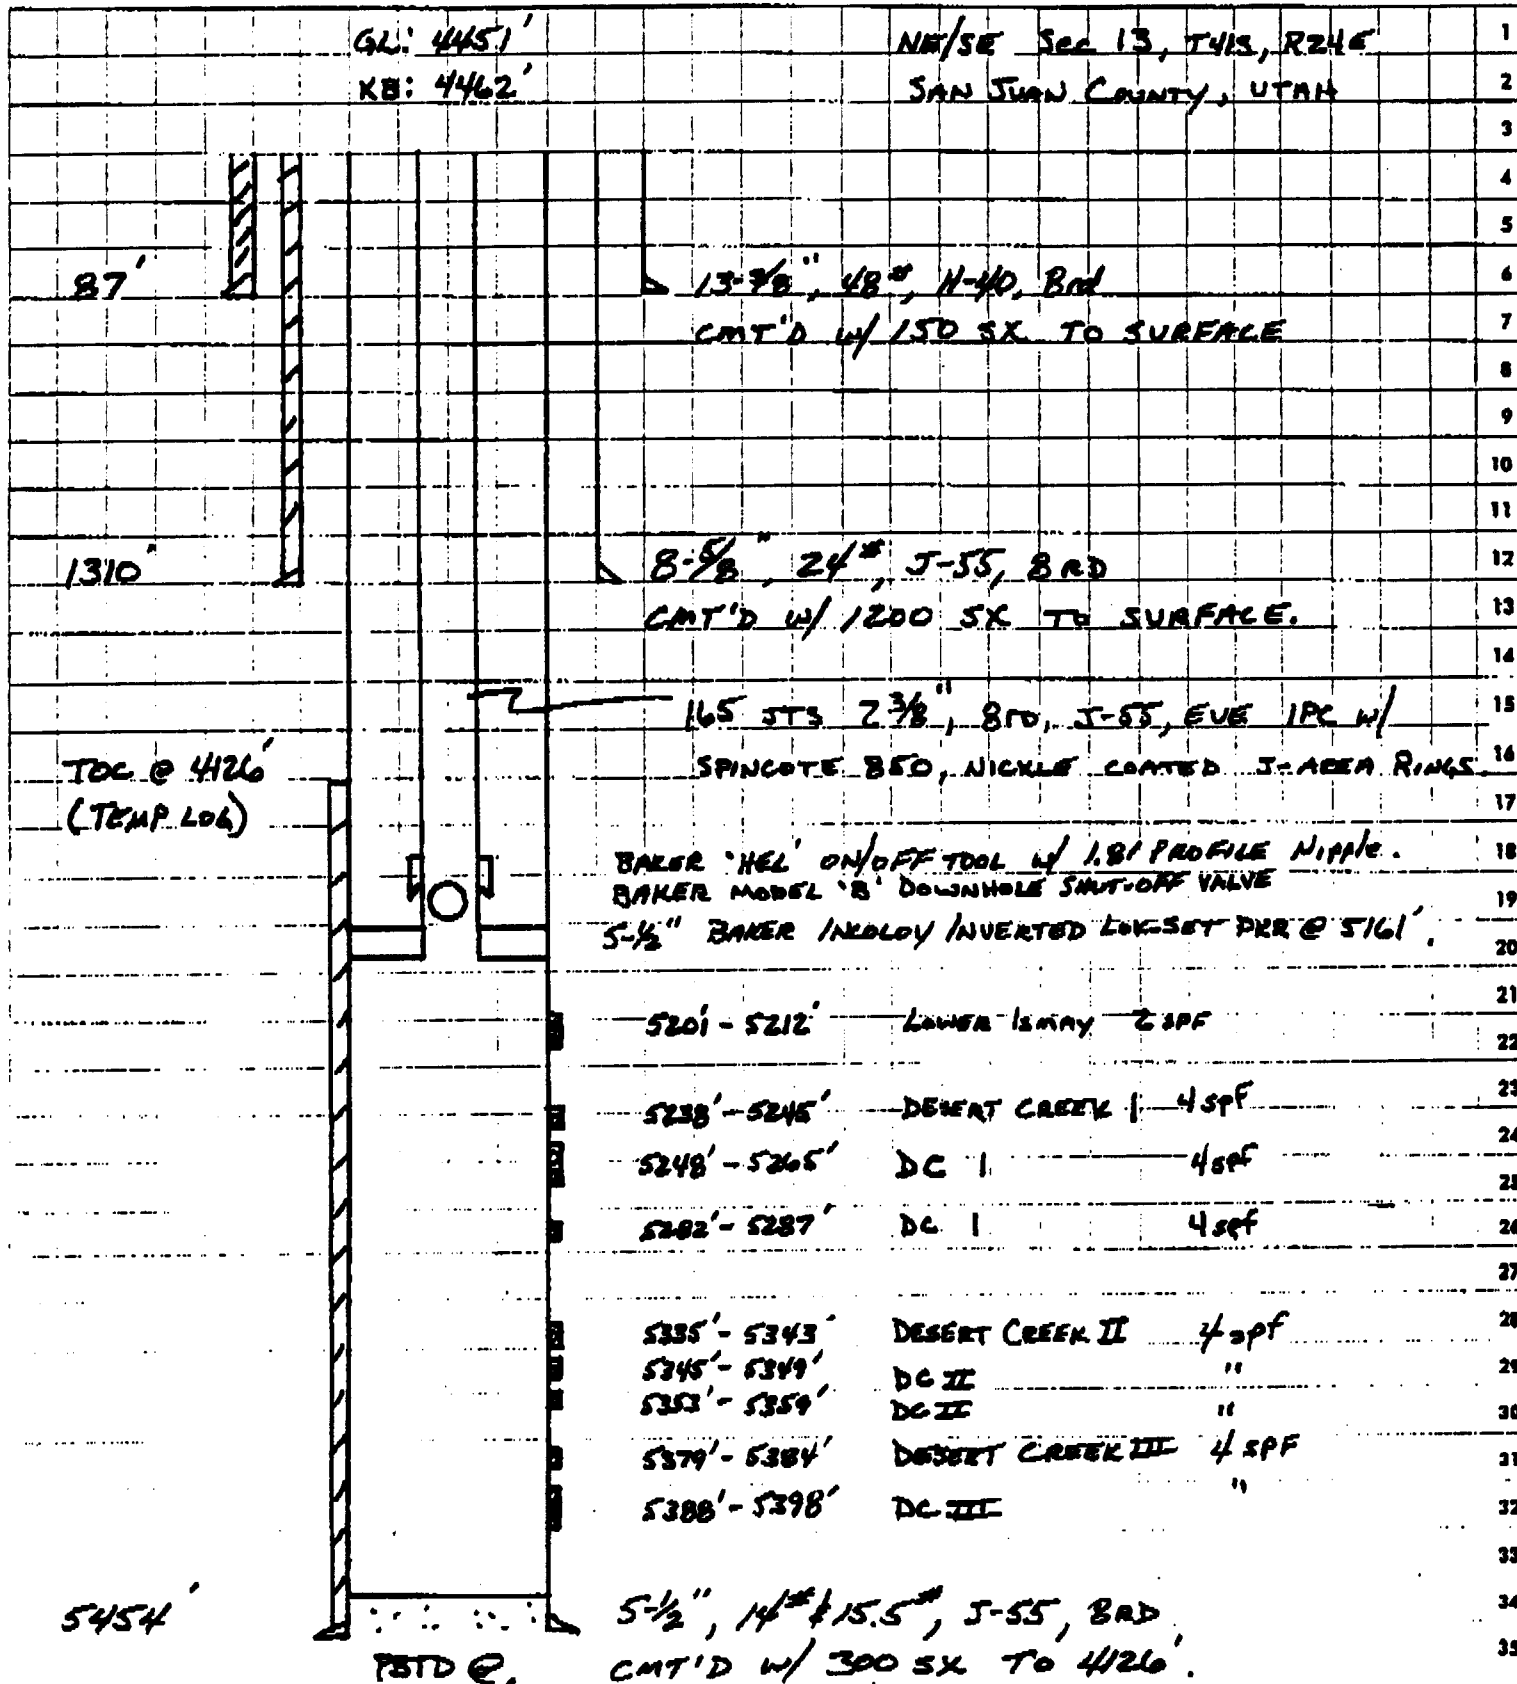 GL: 4451'
NE/SE Sec 13, T41S, R24E
KB: 4462'
SAN JUAN COUNTY, UTAH
87'
13-3/8", 48#, H-40, 8rd
CMT'D w/ 150 SX TO SURFACE
1310'
8-5/8", 24#, J-55, 8RD
CMT'D w/ 1200 SX TO SURFACE.
165 JTS 2 3/8", 8rd, J-55, EUE IPC w/
SPINCOTE 850, NICKLE COATED J-AREA RINGS.
TOC @ 4126'
(TEMP LOG)
BAKER 'HEL' ON/OFF TOOL w/ 1.81 PROFILE NIPPLE.
BAKER MODEL 'B' DOWNHOLE SHUT-OFF VALVE
5-1/2" BAKER INCOLOY INVERTED LOK-SET PKR @ 5161'.
5201'-5212' LOWER ISMAY 2 SPF
5238'-5245' DESERT CREEK I 4 spf
5248'-5265' DC I 4 spf
5282'-5287' DC I 4 spf
5335'-5343' DESERT CREEK II 4 spf
5345'-5349' DC II "
5353'-5359' DC II "
5379'-5384' DESERT CREEK III 4 SPF
5388'-5398' DC III "
5454'
5-1/2", 14# & 15.5#, J-55, 8RD
PBTD @
CMT'D W/ 300 SX TO 4126'.
1
2
3
4
5
6
7
8
9
10
11
12
13
14
15
16
17
18
19
20
21
22
23
24
25
26
27
28
29
30
31
32
33
34
35